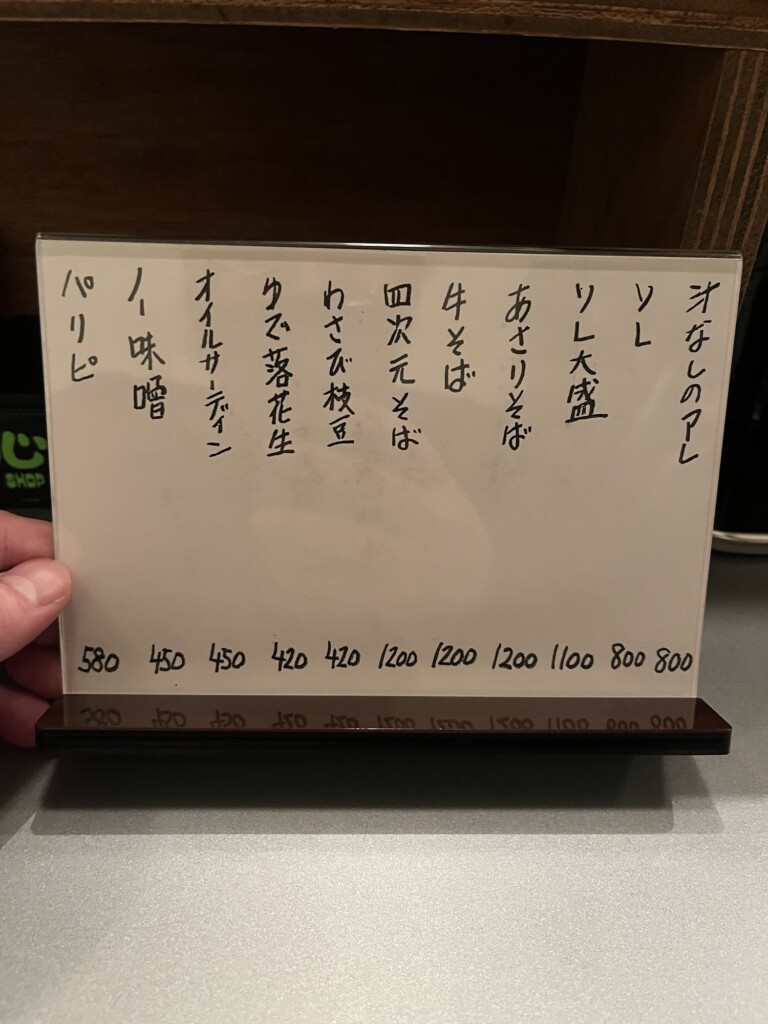 汁なしのアレ 800
ソレ 800
ソレ大盛 1100
あさりそば 1200
牛そば 1200
四次元そば 1200
わさび枝豆 420
ゆで落花生 420
オイルサーディン 450
ノー味噌 450
パリピ 580
SHOP